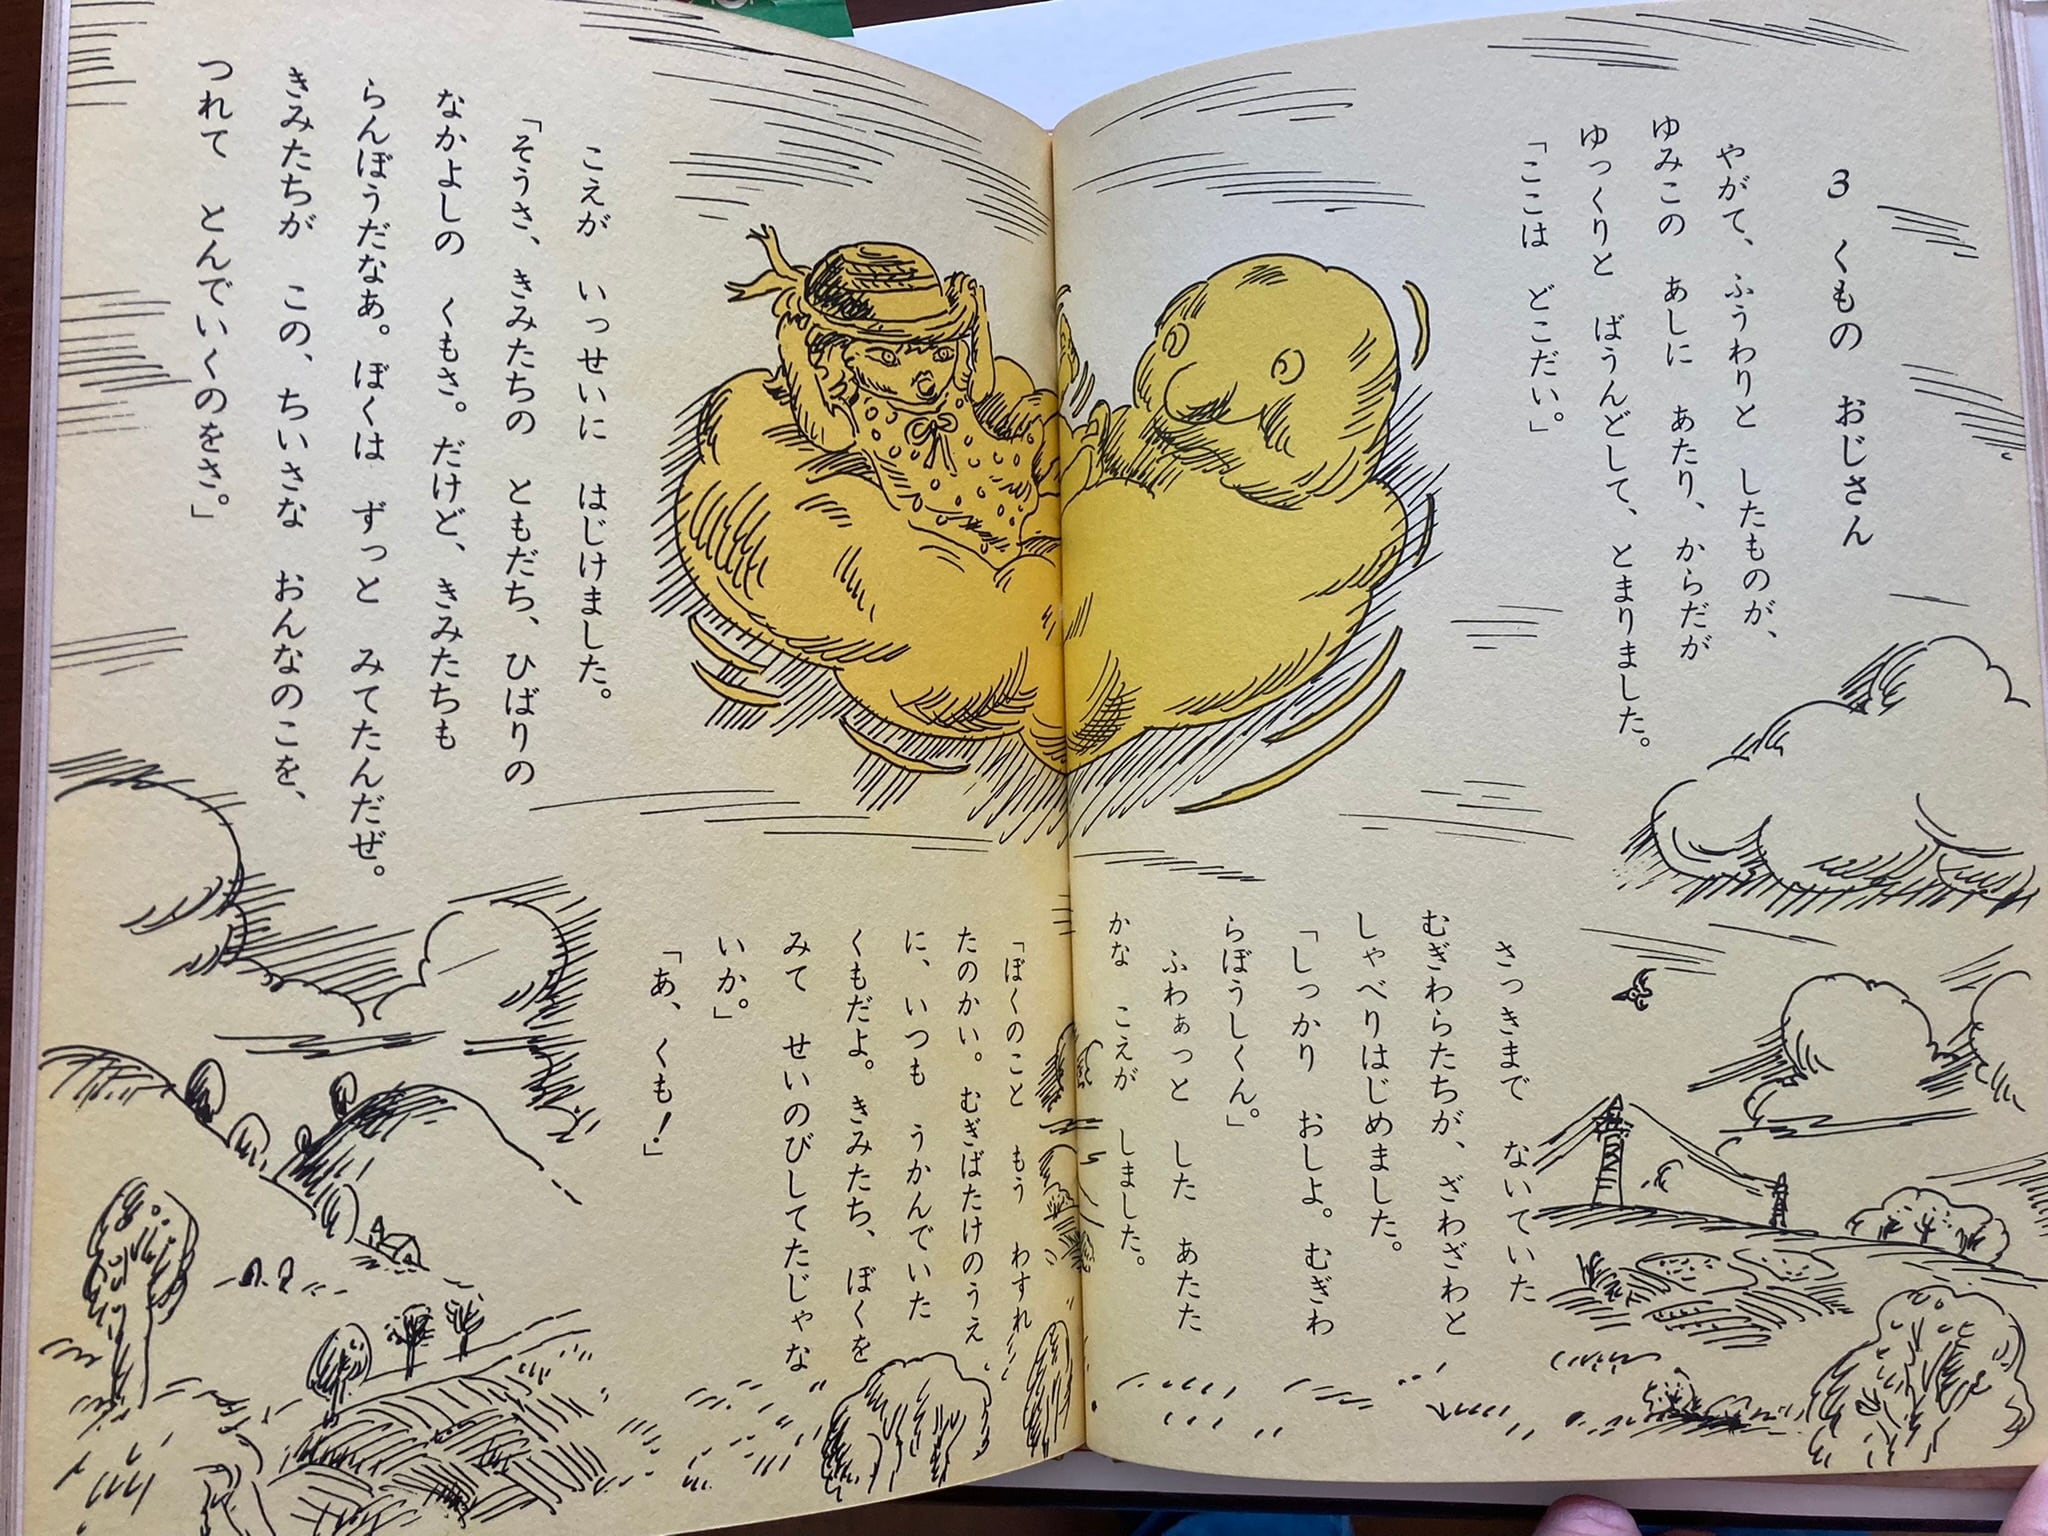 3 くもの おじさん
やがて、ふうわりと したものが、
ゆみこの あしに あたり、からだが
ゆっくりと ばうんどして、とまりました。
「ここは どこだい。」
さっきまで ないていた
むぎわらたちが、ざわざわと
しゃべりはじめました。
「しっかり おしよ。むぎわ
らぼうしくん。」
ふわぁっと した あたた
かな こえが しました。
「ぼくのこと もう わすれ
たのかい。むぎばたけのうえ
に、いつも うかんでいた
くもだよ。きみたち、ぼくを
みて せいのびしてたじゃな
いか。」
「あ、くも！」
こえが いっせいに はじけました。
「そうさ、きみたちの ともだち、ひばりの
なかよしの くもさ。だけど、きみたちも
らんぼうだなあ。ぼくは ずっと みてたんだぜ。
きみたちが この、ちいさな おんなのこを、
つれて とんでいくのをさ。」